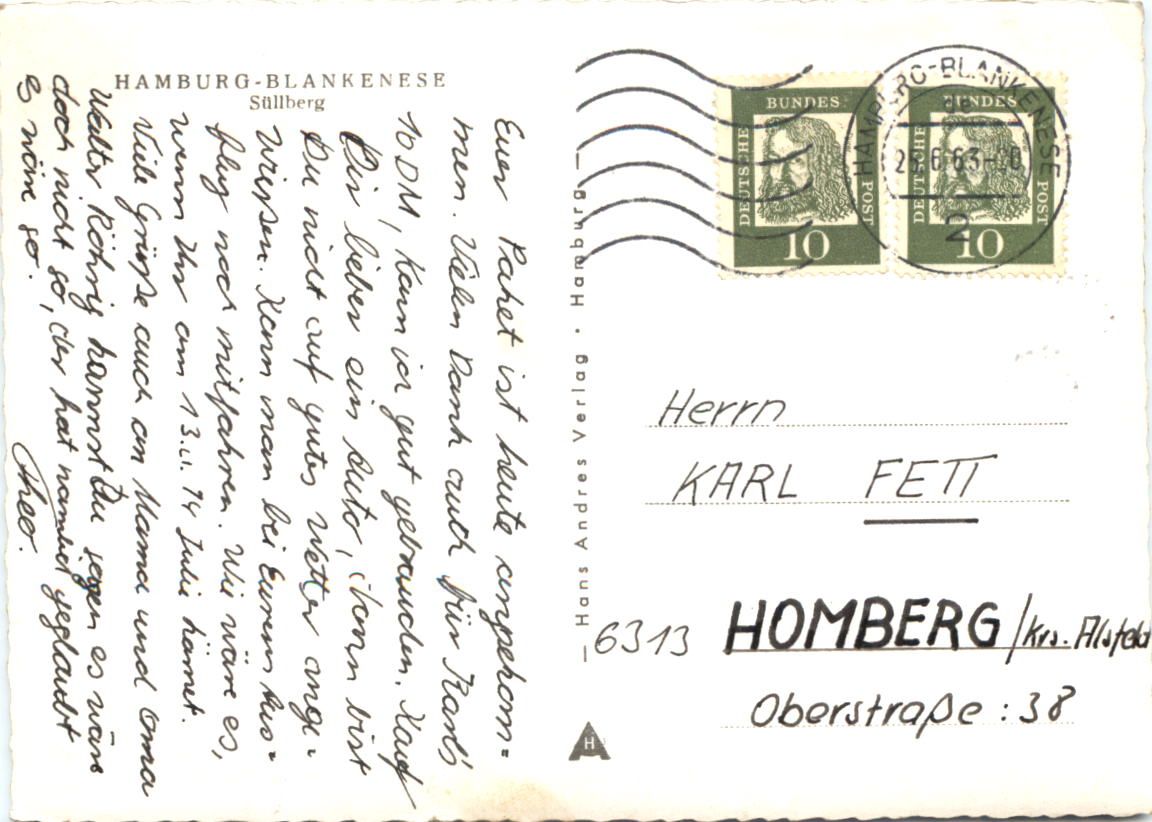 HAMBURG-BLANKENESE
Süllberg
Euer Paket ist heute angekom=
men. Vielen Dank auch für Karl's
10 DM, kann ich gut gebrauchen. Kauf
Dir lieber ein Auto, dann bist
Du nicht auf gutes Wetter ange=
wiesen. Kann man bei Eurem Aus=
flug noch mitfahren. Wie wäre es,
wenn Ihr am 13. u. 14 Juli kämet.
Viele Grüße auch an Mama und Oma
Walter Röhrig kannst Du sagen es wäre
doch nicht so, der hat nämlich geglaubt
es wäre so.
Theo.
Hans Andres Verlag · Hamburg
H
DEUTSCHE BUNDESPOST
10
DEUTSCHE BUNDESPOST
10
HAMBURG-BLANKENESE
25.6.63-20
2
Herrn
KARL FETT
6313 HOMBERG/Krs. Alsfeld
Oberstraße : 38